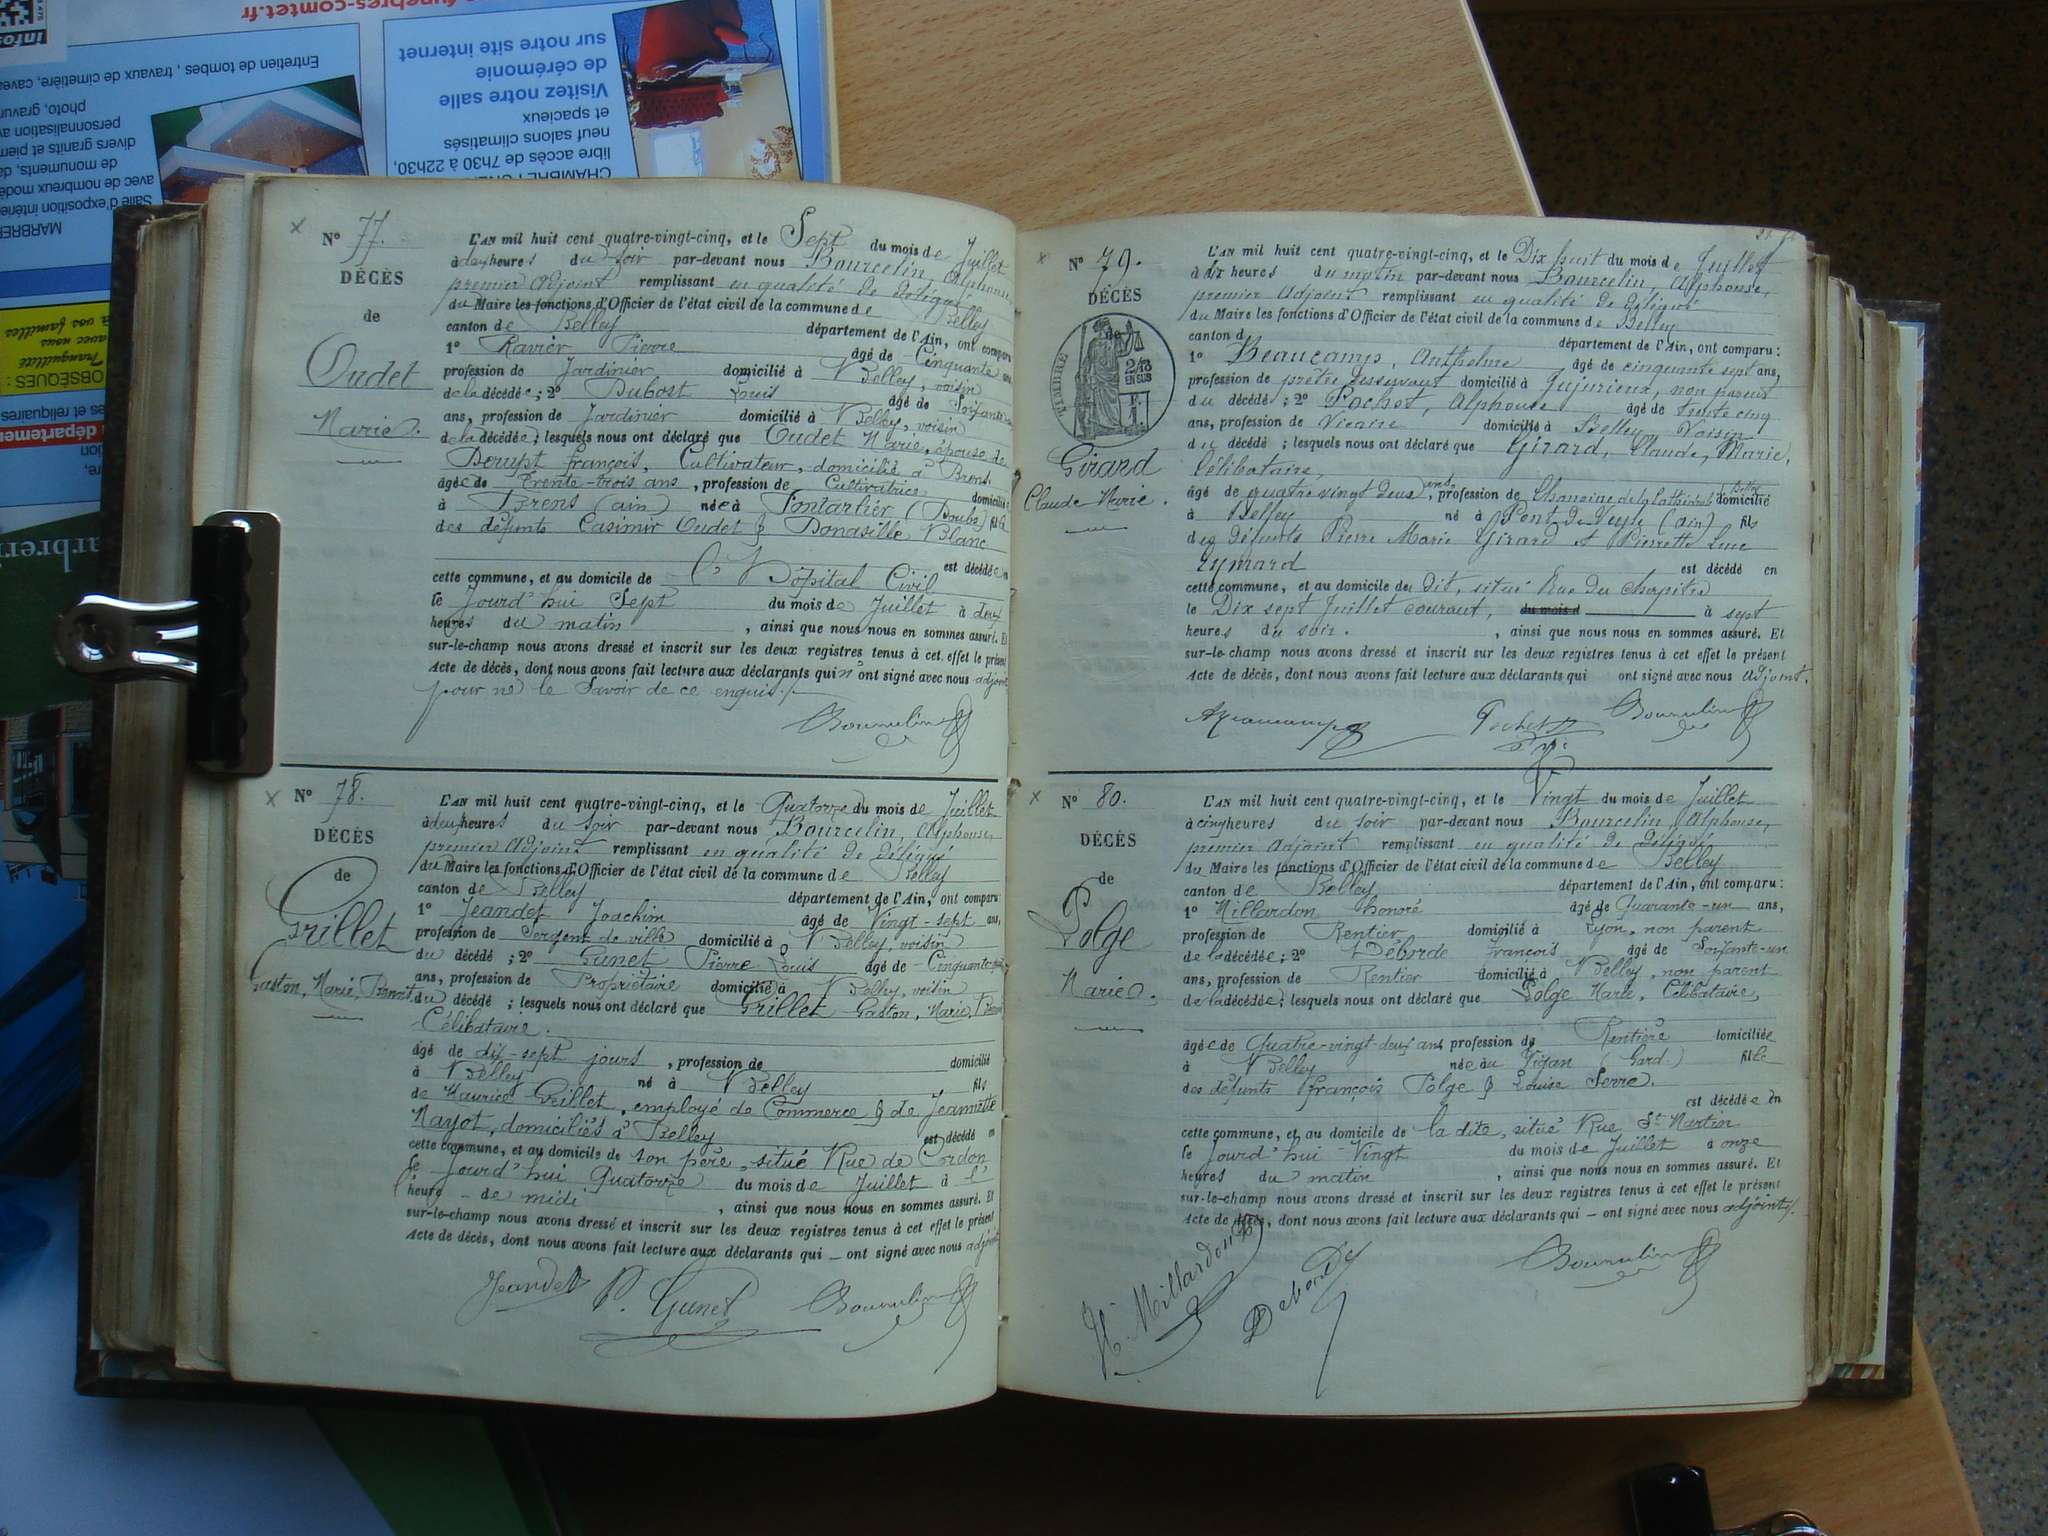 funebres-comtet.fr
Entretien de tombes, travaux de cimetière,
photo,
personnalisation
divers granits et
de monuments,
avec de nombreux
Salle d'exposition
MARBRER
Visitez notre salle
de cérémonie
sur notre site internet
libre accès de 7h30 à 22h30,
neuf salons climatisés
et spacieux
OBSÈQUES :
Tranquillité
avec nous
à vos familles
N° 77.
DÉCÈS
de
Oudet
Marie.
L'AN mil huit cent quatre-vingt-cinq, et le Sept du mois de Juillet
à deux heures du soir par-devant nous Bourcelin, Alphonse,
premier adjoint remplissant en qualité de délégué
du Maire les fonctions d'Officier de l'état civil de la commune de Belley
canton de Belley département de l'Ain, ont comparu
1° Ravier Pierre âgé de Cinquante ans,
profession de Jardinier domicilié à Belley, voisin
de la décédée ; 2° Dubost Louis âgé de Soixante
ans, profession de Jardinier domicilié à Belley, voisin
de la décédée ; lesquels nous ont déclaré que Oudet Marie, épouse de
Derupt françois, Cultivateur, domicilié à Brens,
âgée de Trente-trois ans, profession de Cultivatrice domiciliée
à Brens (ain) née à Pontarlier (Doubs) fille
des défunts Casimir Oudet & Donasille Blanc
est décédée en
cette commune, et au domicile de L'Hôpital Civil
le Jourd'hui Sept du mois de Juillet à deux
heures du matin, ainsi que nous nous en sommes assuré. Et
sur-le-champ nous avons dressé et inscrit sur les deux registres tenus à cet effet le présent
Acte de décès, dont nous avons fait lecture aux déclarants qui n'ont signé avec nous adjoint
pour ne le Savoir de ce enquis./.
N° 78.
DÉCÈS
de
Grillet
Gaston, Marie, Benoit
L'AN mil huit cent quatre-vingt-cinq, et le Quatorze du mois de Juillet
à deux heures du soir par-devant nous Bourcelin, Alphonse,
premier Adjoint remplissant en qualité de délégué
du Maire les fonctions d'Officier de l'état civil de la commune de Belley
canton de Belley département de l'Ain, ont comparu
1° Jeandet Joachim âgé de Vingt-sept ans,
profession de Sergent de ville domicilié à Belley, voisin
du décédé ; 2° Gunet Pierre Louis âgé de Cinquante
ans, profession de Propriétaire domicilié à Belley, voisin
du décédé ; lesquels nous ont déclaré que Grillet Gaston, Marie, Benoit
Célibataire.
âgé de dix-sept jours, profession de domicilié
à Belley né à Belley fils
de Maurice Grillet, employé de Commerce & de Jeannette
Nayot, domiciliés à Belley est décédé en
cette commune, et au domicile de son père, situé Rue de Cordon
le Jourd'hui Quatorze du mois de Juillet à l'
heure de midi, ainsi que nous nous en sommes assuré. Et
sur-le-champ nous avons dressé et inscrit sur les deux registres tenus à cet effet le présent
Acte de décès, dont nous avons fait lecture aux déclarants qui — ont signé avec nous adjoint
Jeandet P. Gunet
N° 79.
DÉCÈS
TIMBRE
2/10
EN SUS
Girard
Claude Marie.
L'AN mil huit cent quatre-vingt-cinq, et le Dix huit du mois de Juillet
à dix heures du matin par-devant nous Bourcelin, Alphonse,
premier Adjoint remplissant en qualité de délégué
du Maire les fonctions d'Officier de l'état civil de la commune de Belley
canton de département de l'Ain, ont comparu :
1° Beaucamp, Anthelme âgé de cinquante sept ans,
profession de prêtre desservant domicilié à Jujurieux, non parent
du décédé ; 2° Pochet, Alphonse âgé de trente cinq
ans, profession de Vicaire domicilié à Belley Voisin
du décédé ; lesquels nous ont déclaré que Girard, Claude, Marie,
Célibataire,
âgé de quatre vingt deux ans, profession de Chanoine de la Cathédrale de Belley domicilié
à Belley né à Pont de Veyle (ain) fils
des défunts Pierre Marie Girard et Pierrette Luce
Eymard est décédé en
cette commune, et au domicile du dit, situé Rue du Chapitre
le Dix sept Juillet courant, du mois d à sept
heures du soir., ainsi que nous nous en sommes assuré. Et
sur-le-champ nous avons dressé et inscrit sur les deux registres tenus à cet effet le présent
Acte de décès, dont nous avons fait lecture aux déclarants qui ont signé avec nous adjoint.
Pochet
N° 80.
DÉCÈS
de
Polge
Marie.
L'AN mil huit cent quatre-vingt-cinq, et le Vingt du mois de Juillet
à cinq heures du soir par-devant nous Bourcelin, Alphonse,
premier adjoint remplissant en qualité de délégué
du Maire les fonctions d'Officier de l'état civil de la commune de Belley
canton de Belley département de l'Ain, ont comparu :
1° Millardon honoré âgé de Quarante-un ans,
profession de Rentier domicilié à Lyon, non parent
de la décédée ; 2° Déborde François âgé de Soixante-un
ans, profession de Rentier domicilié à Belley, non parent
de la décédée ; lesquels nous ont déclaré que Polge Marie, Célibataire,
âgée de Quatre-vingt-deux ans profession de Rentière domiciliée
à Belley née au Vigan (Gard.) fille
des défunts François Polge & Louise Serre.
est décédée en
cette commune, et au domicile de la dite, situé Rue St Martin
le Jourd'hui Vingt du mois de Juillet à onze
heures du matin, ainsi que nous nous en sommes assuré. Et
sur-le-champ nous avons dressé et inscrit sur les deux registres tenus à cet effet le présent
Acte de décès, dont nous avons fait lecture aux déclarants qui — ont signé avec nous adjoint/.
H. Millardon Deborde